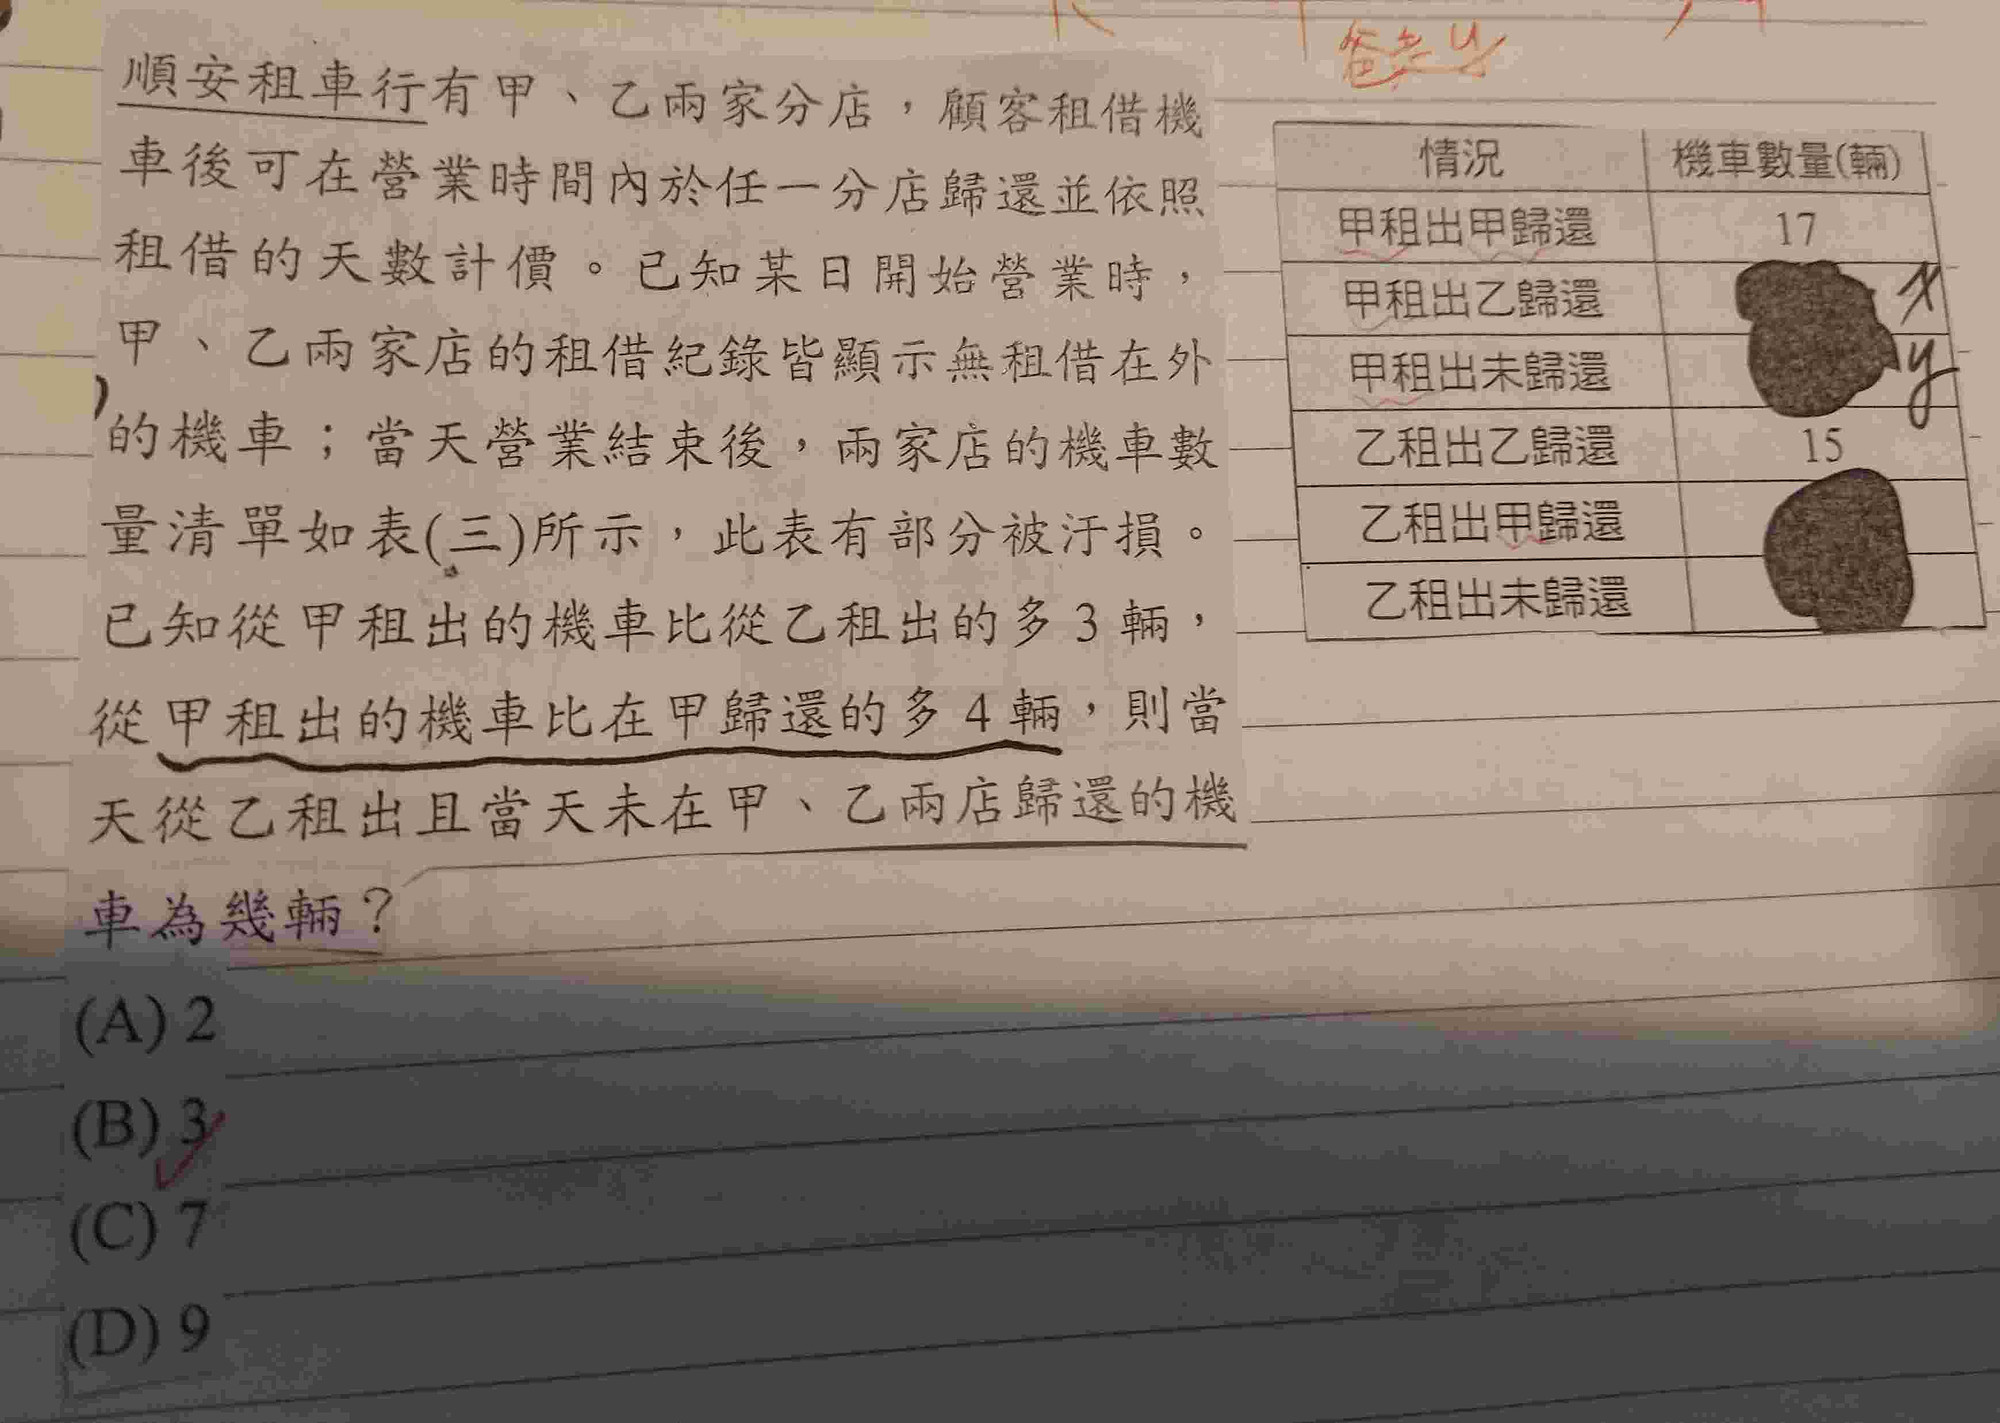 順安租車行有甲、乙兩家分店，顧客租借機
車後可在營業時間內於任一分店歸還並依照
租借的天數計價。已知某日開始營業時，
甲、乙兩家店的租借紀錄皆顯示無租借在外
的機車；當天營業結束後，兩家店的機車數
量清單如表(三)所示，此表有部分被汙損。
已知從甲租出的機車比從乙租出的多3輛，
從甲租出的機車比在甲歸還的多4輛，則當
天從乙租出且當天未在甲、乙兩店歸還的機
車為幾輛？
(A) 2
(B) 3
(C) 7
(D) 9
情況 機車數量(輛)
甲租出甲歸還 17
甲租出乙歸還 x
甲租出未歸還 y
乙租出乙歸還 15
乙租出甲歸還
乙租出未歸還